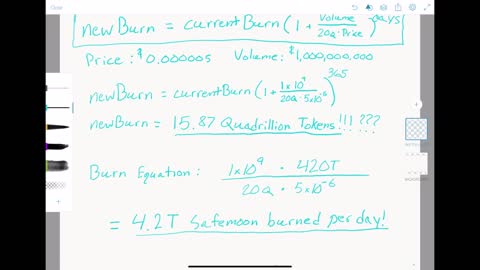 newBurn = currentBurn (1 + Volume / 20Q · Price)^days
Price : $0.000005 Volume: $1,000,000,000
newBurn = currentBurn (1 + 1x10^9 / 20Q · 5x10^-6)^365
newBurn = 15.87 Quadrillion Tokens!!! ???
Burn Equation: 1x10^9 · 420T / 20Q · 5x10^-6
= 4.2T Safemoon burned per day!